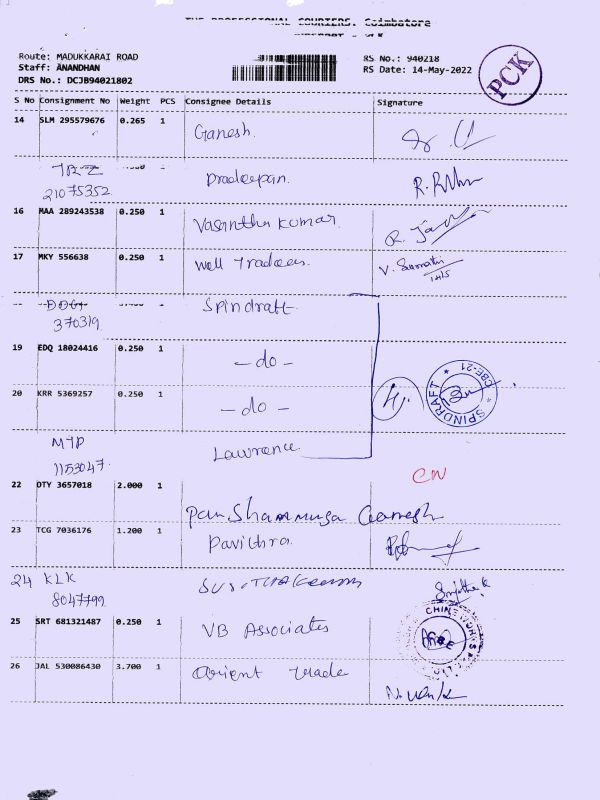 THE PROFESSIONAL COURIERS. Coimbatore
Route: MADUKKARAI ROAD
Staff: ANANDHAN
DRS No.: DCJB94021802
RS No.: 940218
RS Date: 14-May-2022
PCK
S No Consignment No Weight PCS Consignee Details Signature
14 SLM 295579676 0.265 1 Ganesh.
21075352 Pradeepan.
16 MAA 289243538 0.250 1 Vasantha Kumar.
17 MKY 556638 0.250 1 Well Traders. V. Sumathi
14/5
370319 Spindraft.
19 EDQ 18024416 0.250 1 - do -
20 KRR 5369257 0.250 1 - do -
SPINDRAFT * CBE-21 *
MTP
1153047. Lawrence.
CN
22 DTY 3657018 2.000 1 Shanmuga Ganesh
23 TCG 7036176 1.200 1 Pavithra.
24 KLK
8047799
25 SRT 681321487 0.250 1 VB Associates
26 JAL 530086430 3.700 1 Orient trade